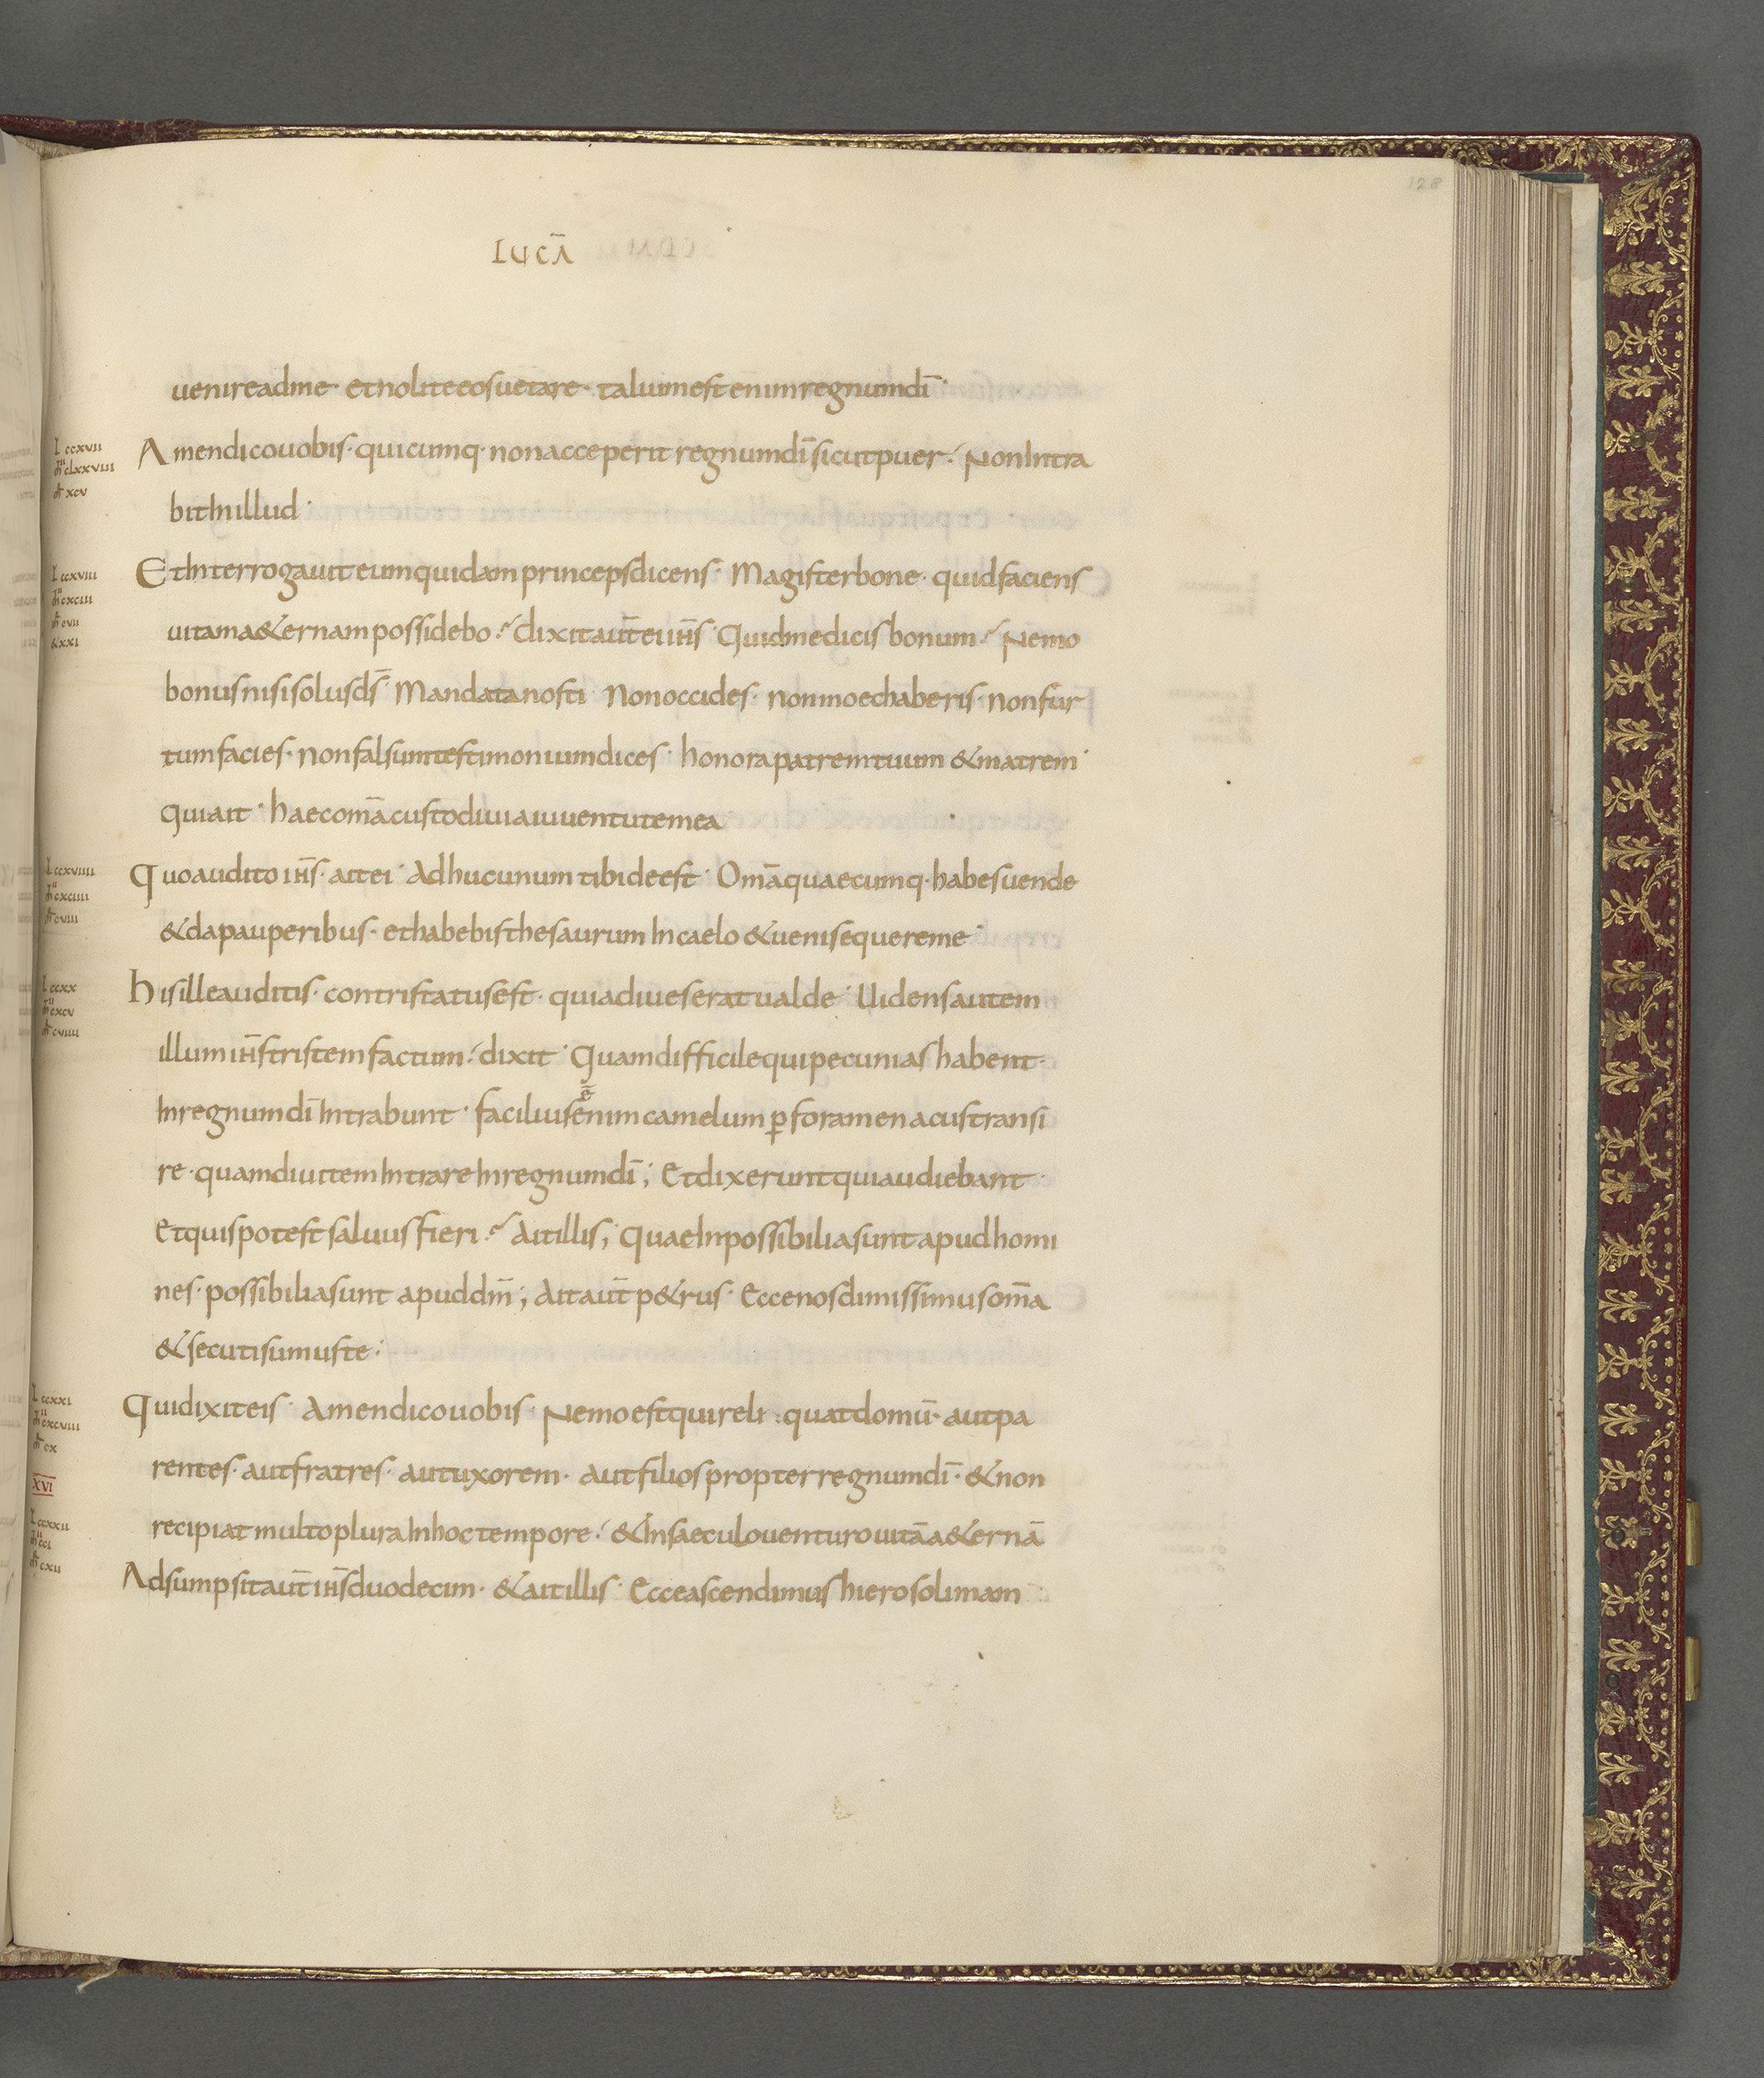 128
LUCĀ
uenire ad me· et nolite eos uetare· talium est enim regnum dī·
L ccxvii
m̄ clxxviiii
m̄ xcv
Amen dico uobis· quicumq· non acceperit regnum dī sicut puer· Non intra
bit in illud·
L ccxviii
m̄ cxciii
m̄ cvii
&xxi
Et interrogauit eum quidam princeps dicens· Magister bone· quid faciens
uitam a&ernam possidebo· dixit aūt ei ih̄s· Quid me dicis bonum· Nemo
bonus nisi solus d̄s· Mandata nosti· Non occides· non moechaberis· non fur
tum facies· non falsum testimonium dices· honora patrem tuum & matrem·
Qui ait· haec om̄a custodiui a iuuentute mea
L ccxviiii
m̄ cxciiii
m̄ cviii
Quo audito ih̄s· ait ei· Adhuc unum tibi deest· Om̄a quaecumq· habes uende
& da pauperibus· et habebis thesaurum in caelo & ueni sequere me·
L ccxx
m̄ cxcv
m̄ cviiii
his ille auditis· contristatus est· quia diues erat ualde· Uidens autem
illum ih̄s tristem factum· dixit· Quam difficile qui pecunias habent·
in regnum dī intrabunt· facilius ē enim camelum p̲ foramen acus transi
re· quam diuitem intrare in regnum dī; Et dixerunt qui audiebant·
Et quis potest saluus fieri· Ait illis; Quae inpossibilia sunt apud homi
nes· possibilia sunt apud dm̄; Ait aūt p&rus· Ecce nos dimissimus om̄a
& secuti sumus te·
L ccxxi
m̄ cxcviii
m̄ cx
Qui dixit eis· Amen dico uobis· Nemo est qui reli quat domū· aut pa
rentes· aut fratres· aut uxorem· aut filios propter regnum dī· & non
XVI
recipiat multo plura in hoc tempore· & in saeculo uenturo uitā a&ernā
L ccxxii
m̄ cci
m̄ cxii
Adsumpsit aūt ih̄s duodecim· & ait illis· Ecce ascendimus hierosolimam